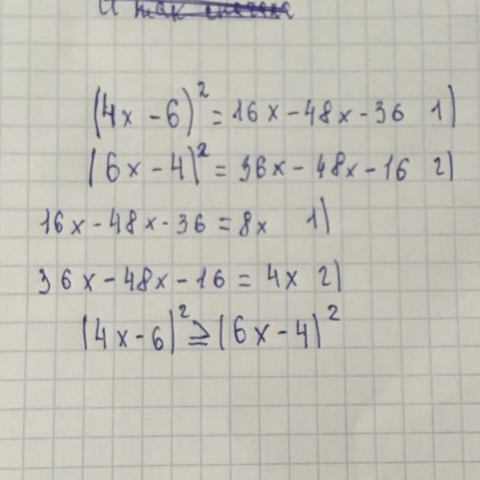 И так
(4x-6)² = 16x-48x-36 1)
(6x-4)² = 36x-48x-16 2)
16x-48x-36 = 8x 1)
36x-48x-16 = 4x 2)
(4x-6)² ≥ (6x-4)²